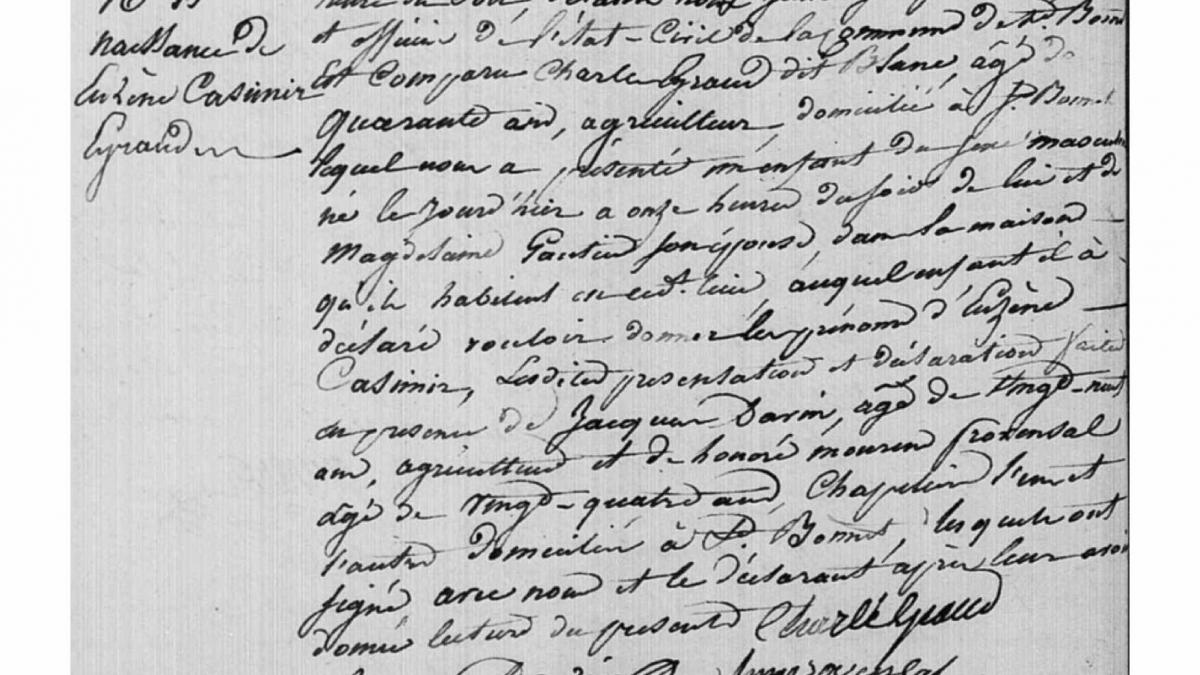 naissance de
Eugène Casimir
Eyraud
et officier de l'état-Civil de la commune de St. Bonnet
Est Comparu Charle Eyraud dit Blanc, âgé de
Quarante ans, agriculteur, domicilié à St. Bonnet
lequel nous a présenté un enfant du sexe masculin
né le jourd'hier a onze heures du soir de lui et de
Magdelaine Gautier son épouse, dans la maison
qu'ils habitent en cedt. lieu, auquel enfant il à
déclaré vouloir donner les prénoms d'Eugène
Casimir, Lesdites presentation et déclaration faites
en presence de Jacques Davin, âgé de Vingt-neuf
ans, agriculteur et de honoré mourin provensal
âgé de Vingt-quatre ans, Chapelier l'un et
l'autre domiciliés à St. Bonnet, lesquels ont
signé avec nous et le déclarant après leur avoir
donné lecture du present Charle Eyraud